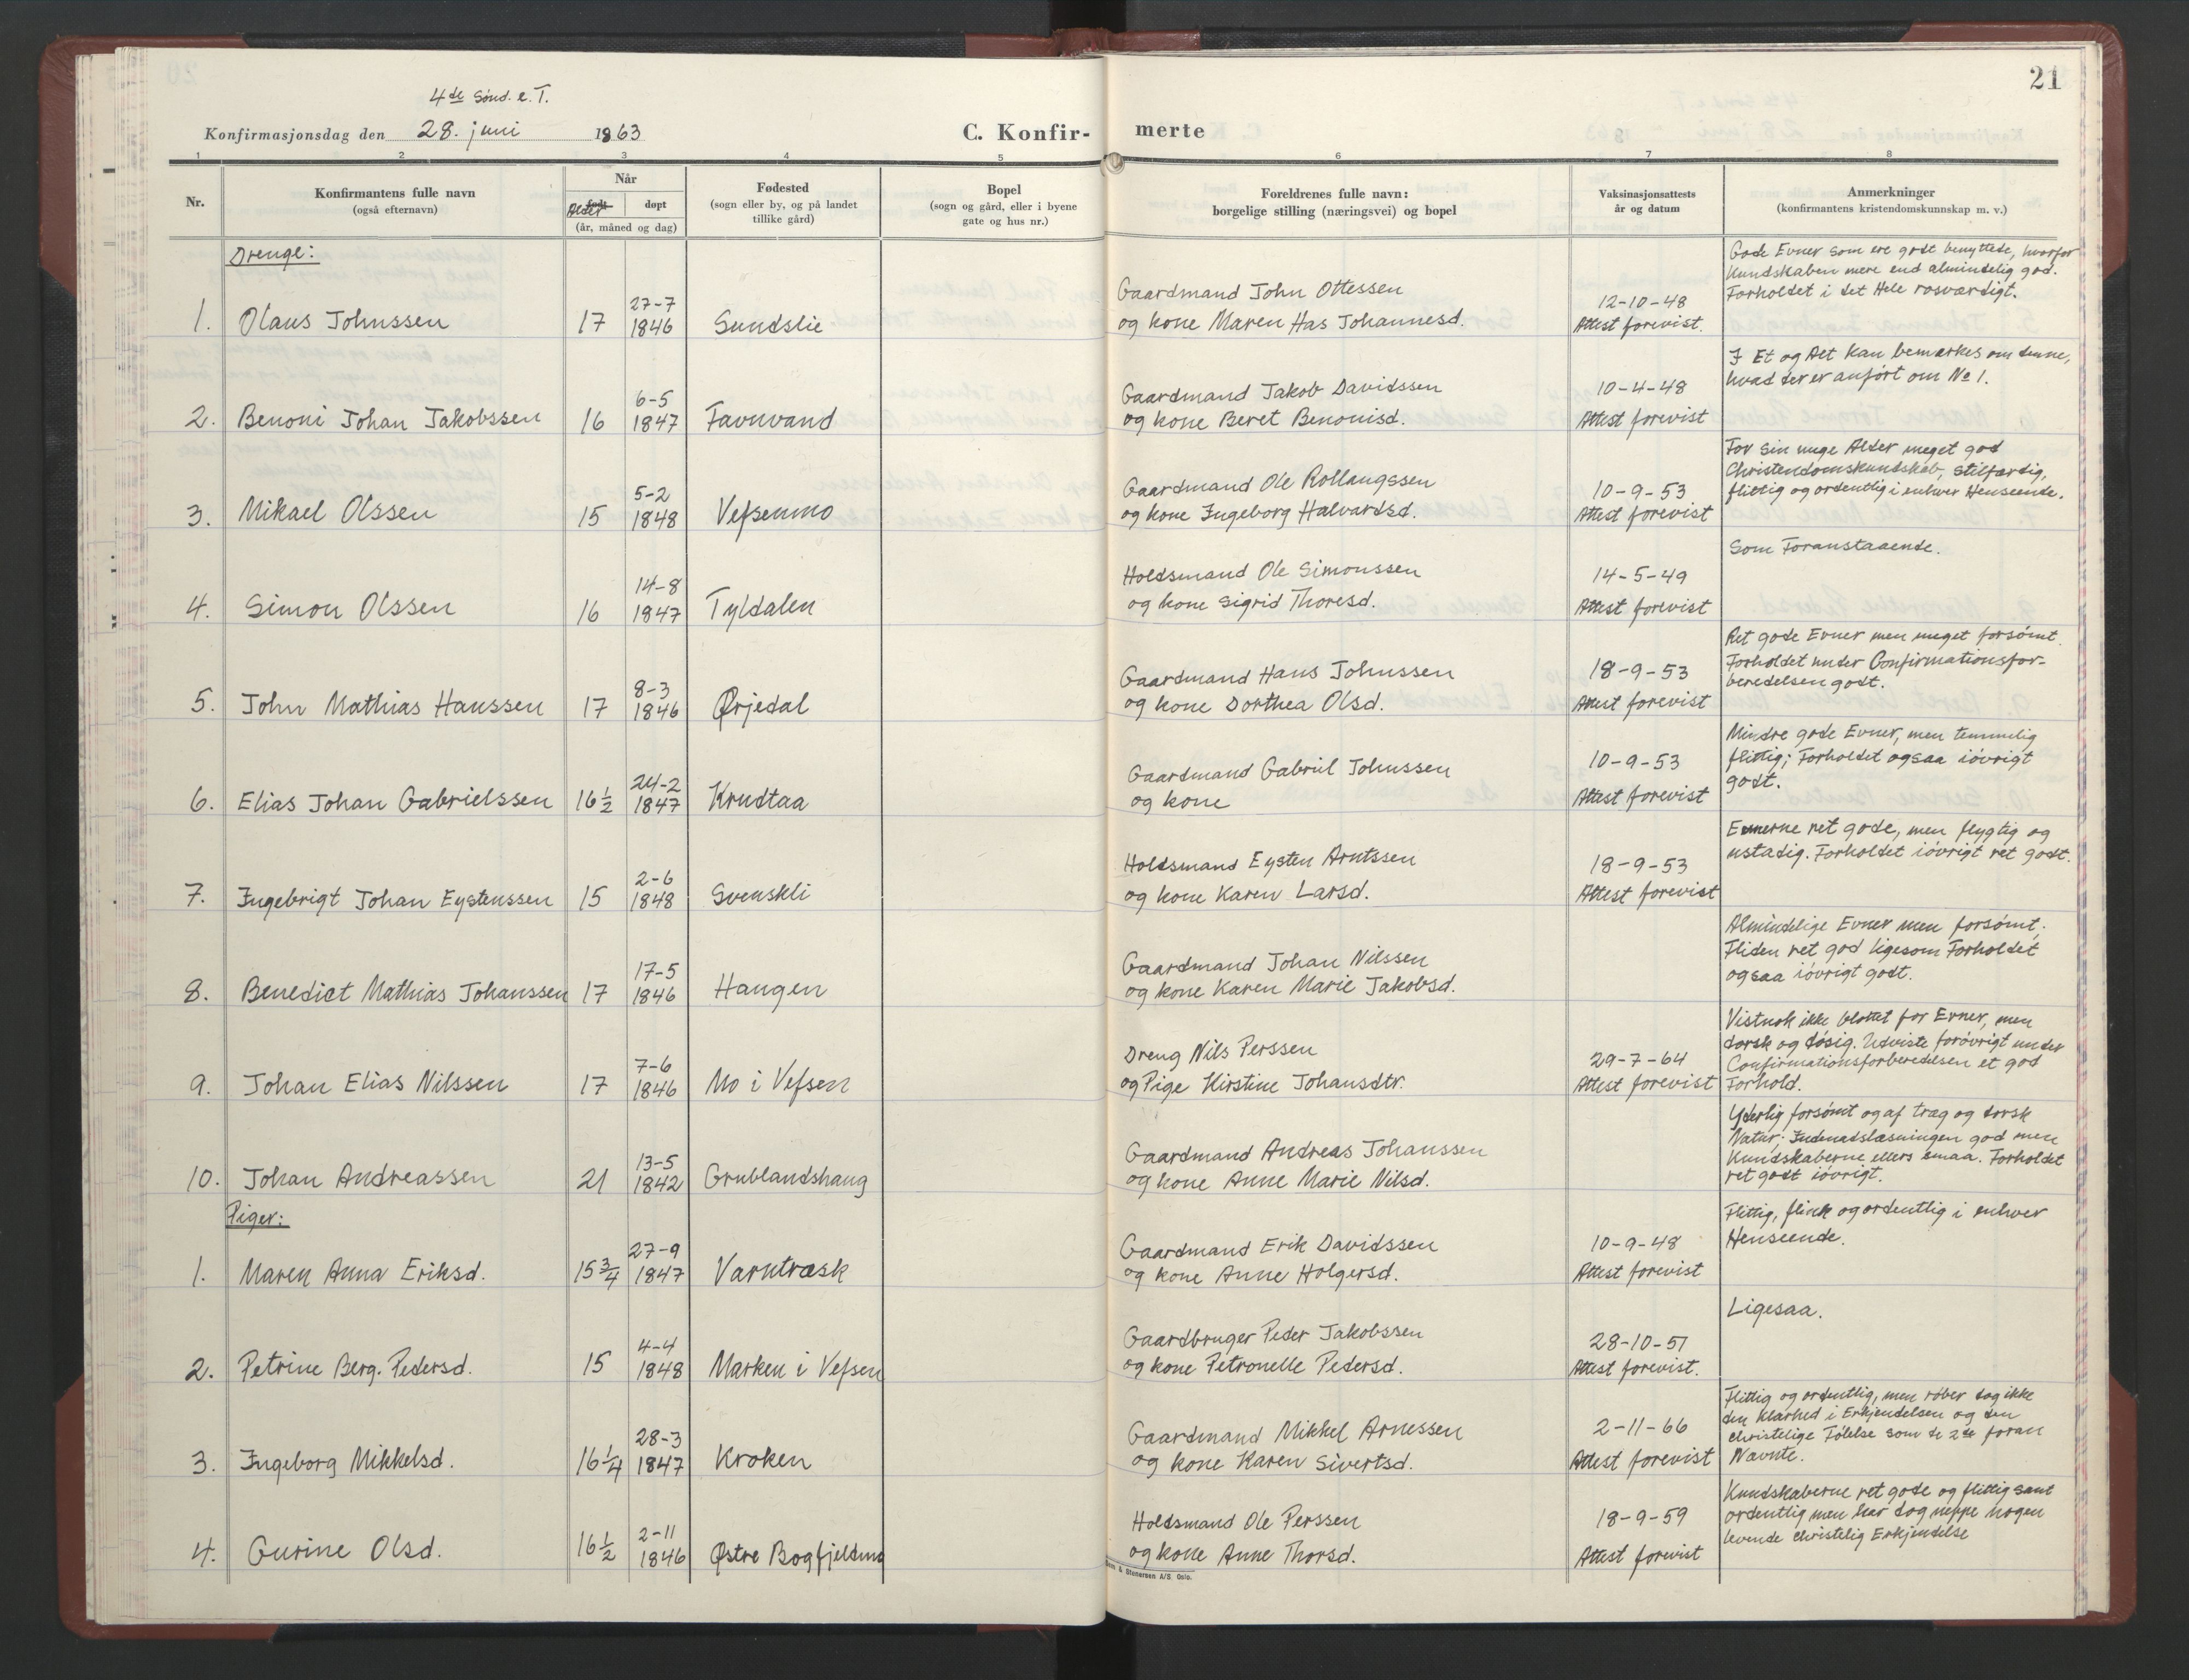 21
4de Sønd. e. T.
Konfirmasjonsdag den 28. juni 1863
C. Konfir-
merte
1 2 3 4 5 6 7 8
Nr.
Konfirmantens fulle navn
(også efternavn)
Når
født Alder
døpt
(år, måned og dag)
Fødested
(sogn eller by, og på landet
tillike gård)
Bopel
(sogn og gård, eller i byene
gate og hus nr.)
Foreldrenes fulle navn:
borgelige stilling (næringsvei) og bopel
Vaksinasjonsattests
år og datum
Anmerkninger
(konfirmantens kristendomskunnskap m. v.)
Drenge:
1. Olaus Johnssen 17 27-7 1846 Sundslie
Gaardmand John Ottessen
og kone Maren Has Johannesd.
12-10-48
Attest forevist.
Gode Evner som ere godt benyttede, hvorfor
Kundskaben mere end almindelig god.
Forholdet i det Hele rosværdigt.
2. Benoni Johan Jakobssen 16 6-5 1847 Favnvand
Gaardmand Jakob Davidssen
og kone Beret Benonisd.
10-4-48
Attest forevist
I Et og Alt kan bemærkes om denne,
hvad der er anført om No 1.
3. Mikael Olssen 15 5-2 1848 Vefsenmo
Gaardmand Ole Rollaugssen
og kone Ingeborg Halvardsd.
10-9-53
Attest forevist
For sin unge Alder meget god
Christendomskundskab, stilfærdig,
flittig og ordentlig i enhver Henseende.
4. Simon Olssen 16 14-8 1847 Tyldalen
Holdsmand Ole Simonssen
og kone Sigrid Thoresd.
14-5-49
Attest forevist
Som Foranstaaende.
5. John Mathias Hanssen 17 8-3 1846 Ørjedal
Gaardmand Hans Johnssen
og kone Dorthea Olsd.
18-9-53
Attest forevist
Ret gode Evner men meget forsømt.
Forholdet under Confirmationsfor-
beredelsen godt.
6. Elias Johan Gabrielssen 16½ 24-2 1847 Krudtaa
Gaardmand Gabriel Johnssen
og kone
10-9-53
Attest forevist
Mindre gode Evner, men temmelig
flittig; Forholdet ogsaa iøvrigt
godt.
7. Ingebrigt Johan Eystenssen 15 2-6 1848 Svenskli
Holdsmand Eysten Arntssen
og kone Karen Larsd.
18-9-53
Attest forevist
Evnerne ret gode, men flygtig og
ustadig. Forholdet iøvrigt ret godt.
8. Benedict Mathias Johanssen 17 17-5 1846 Haugen
Gaardmand Johan Nilssen
og kone Karen Marie Jakobsd.
Almindelige Evner men forsømt.
Fliden ret god ligesom Forholdet
ogsaa iøvrigt godt.
9. Johan Elias Nilssen 17 7-6 1846 Mo i Vefsen
Dreng Nils Perssen
og Pige Kirstine Johansdtr.
29-7-64
Attest forevist
Vistnok ikke blottet for Evner, men
dorsk og døsig. Udviste forøvrigt under
Confirmationsforberedelsen et god
Forhold.
10. Johan Andreassen 21 13-5 1842 Grublandshaug
Gaardmand Andreas Johanssen
og kone Anne Marie Nilsd.
Yderlig forsømt og af træg og dorsk
Natur; Indenadslæsningen god men
Kundskaberne ellers smaa. Forholdet
ret godt iøvrigt.
Piger:
1. Maren Anna Eriksd. 15¾ 27-9 1847 Varntræsk
Gaardmand Erik Davidssen
og kone Anne Holgersd.
10-9-48
Attest forevist
Flittig, flink og ordentlig i enhver
Henseende.
2. Petrine Berg. Pedersd. 15 4-4 1848 Marken i Vefsen
Gaardbruger Peder Jakobssen
og kone Petronelle Pedersd.
28-10-51
Attest forevist.
Ligesaa.
3. Ingeborg Mikkelsd. 16¼ 28-3 1847 Kroken
Gaardmand Mikkel Arnessen
og kone Karen Sivertsd.
2-11-66
Attest forevist
Flittig og ordentlig, men røber dog ikke
den Klarhed i Erkjendelsen og den
christelige Følelse som de 2de foran
Nævnte.
4. Gurine Olsd. 16½ 2-11 1846 Østre Bogfjeldmo
Holdsmand Ole Perssen
og kone Anne Thorsd.
18-9-59
Attest forevist
Kundskaberne ret gode og flittig samt
ordentlig men har dog neppe nogen
levende christelig Erkjendelse
& Stenersen A/S Oslo.